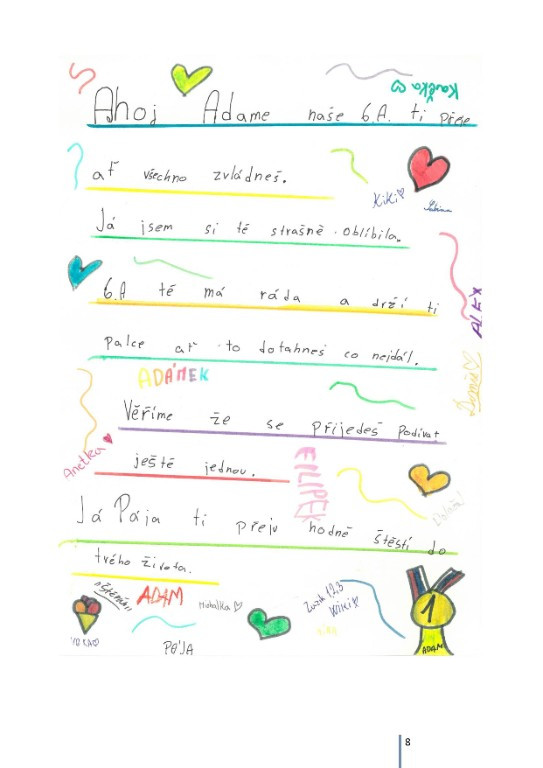 Kačka
Ahoj Adame naše 6.A. ti přeje
ať všechno zvládneš.
KiKi
Sabina
Já jsem si tě strašně oblíbila.
6.A tě má ráda a drží ti
ALEX
palce ať to dotáhneš co nejdál.
ADÁMEK
Věříme že se přijedeš podívat
Anetka
ještě jednou.
FILIPEK
Já Pája ti přeju hodně štěstí do
tvého života.
ADAM
Wiki
1
ADAM
PÁJA
8